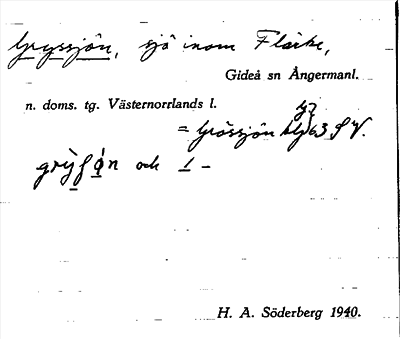 Gryssjön, sjö inom Flärke,
Gideå sn Ångermanl.
n. doms. tg. Västernorrlands l.
= Grössjön 63 S V.
och 1 -
H. A. Söderberg 1940.